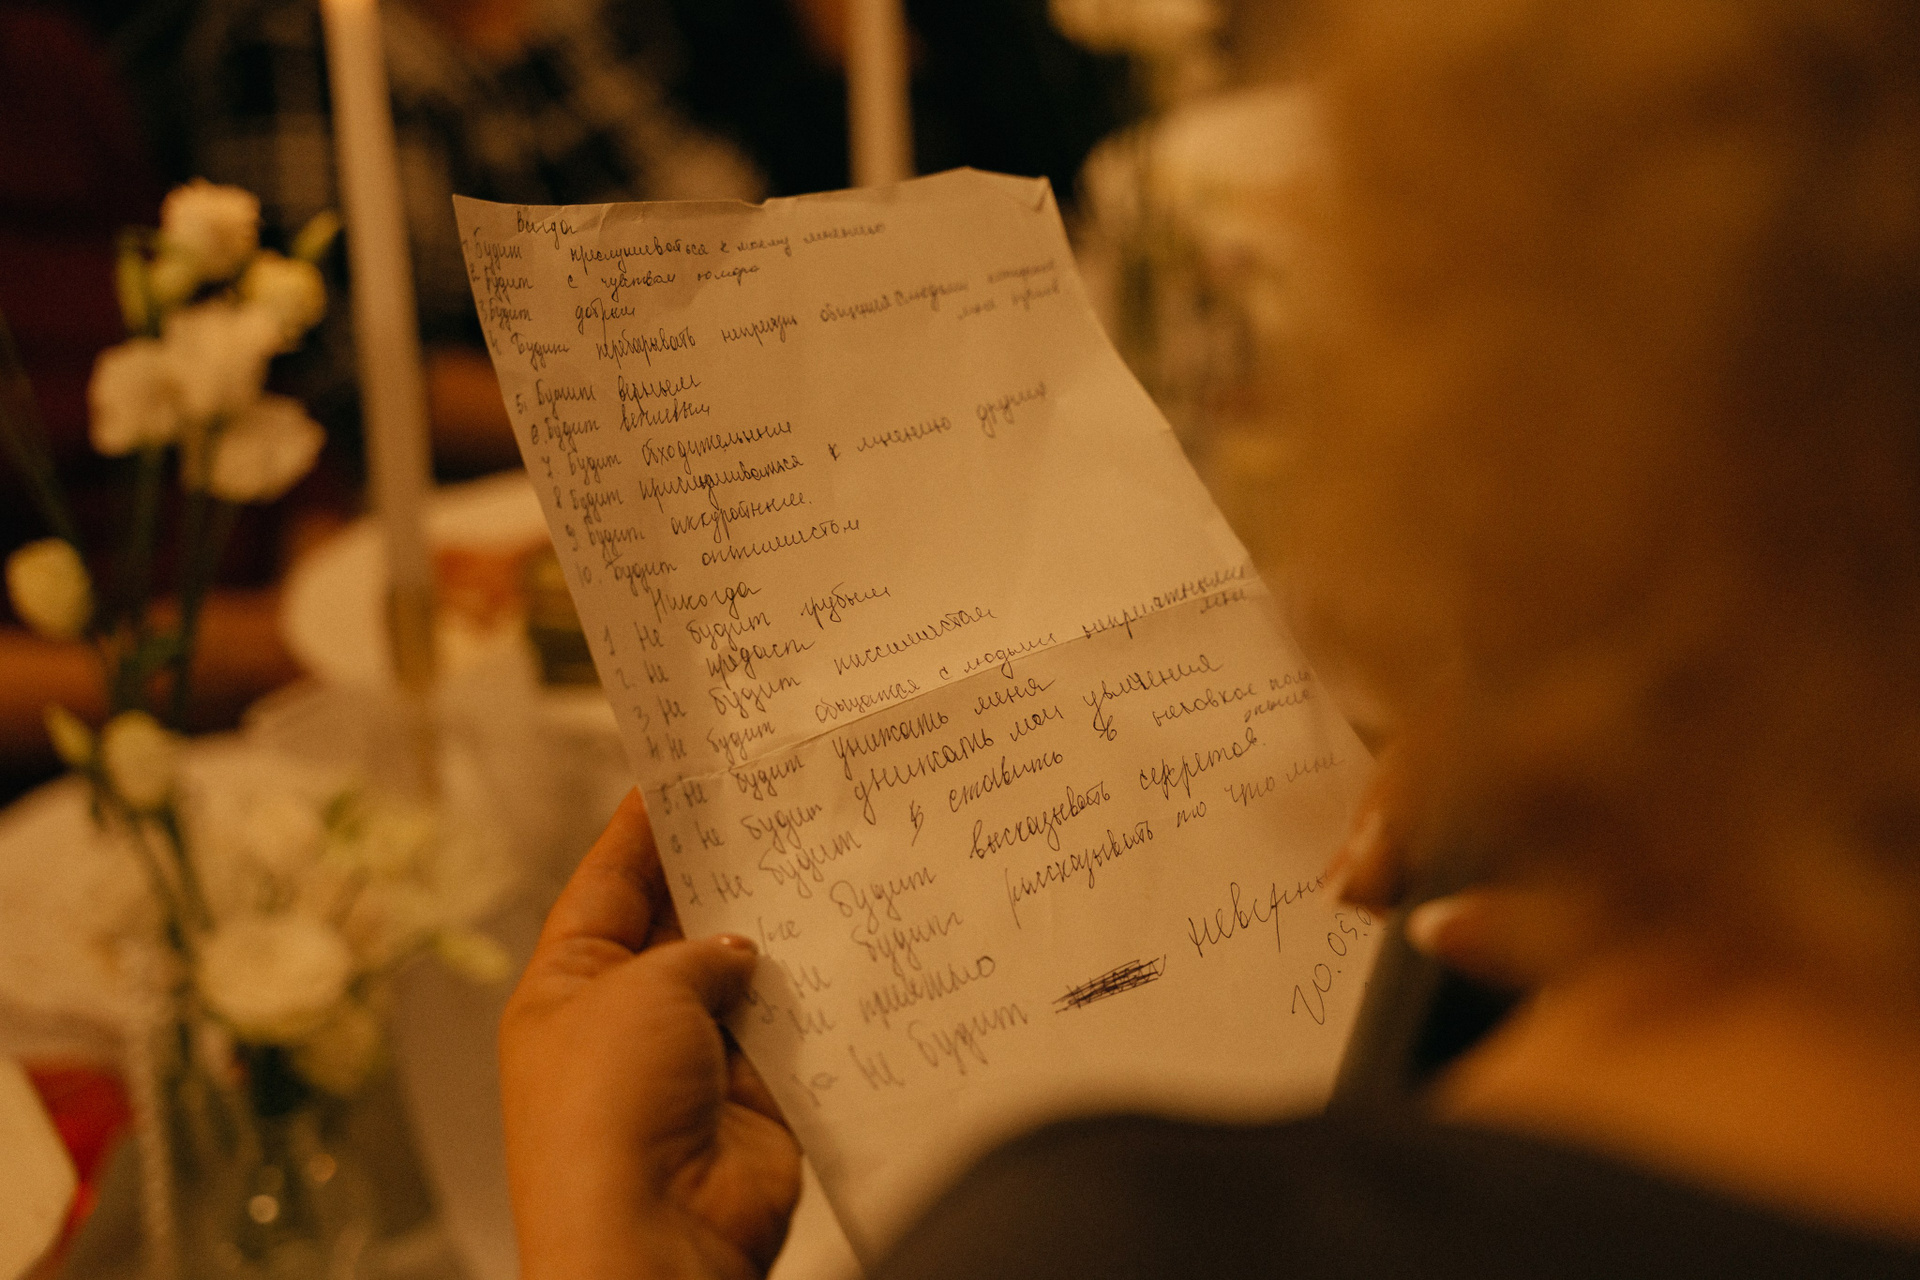 Всегда
1. Будит прислушеваться к моему мнению
2. Будит с чувством юмора
3 Будит добрым
4 Будит перебарывать неприязн общения с людьми которые
мне
5. Будит верным
6. Будит вежлевым
7. Будит обходительным
8 Будит прислушиваться к мнению других
9 Будит аккуратным.
10. Будит оптимистом
Никогда
1 Не будит грубым
2. Не предаст
3 Не будит писсимистом
4 Не будит общатся с людьми неприятными
мне
5. Не будит унижать меня
6 Не будит унижать мои увличения
7 Не будит ставить в неловкое поло
8 Не будит высказывать секретов.
9 Не будит рассказывать то что мне
не приятно
10 Не будит неверны
20.05.0